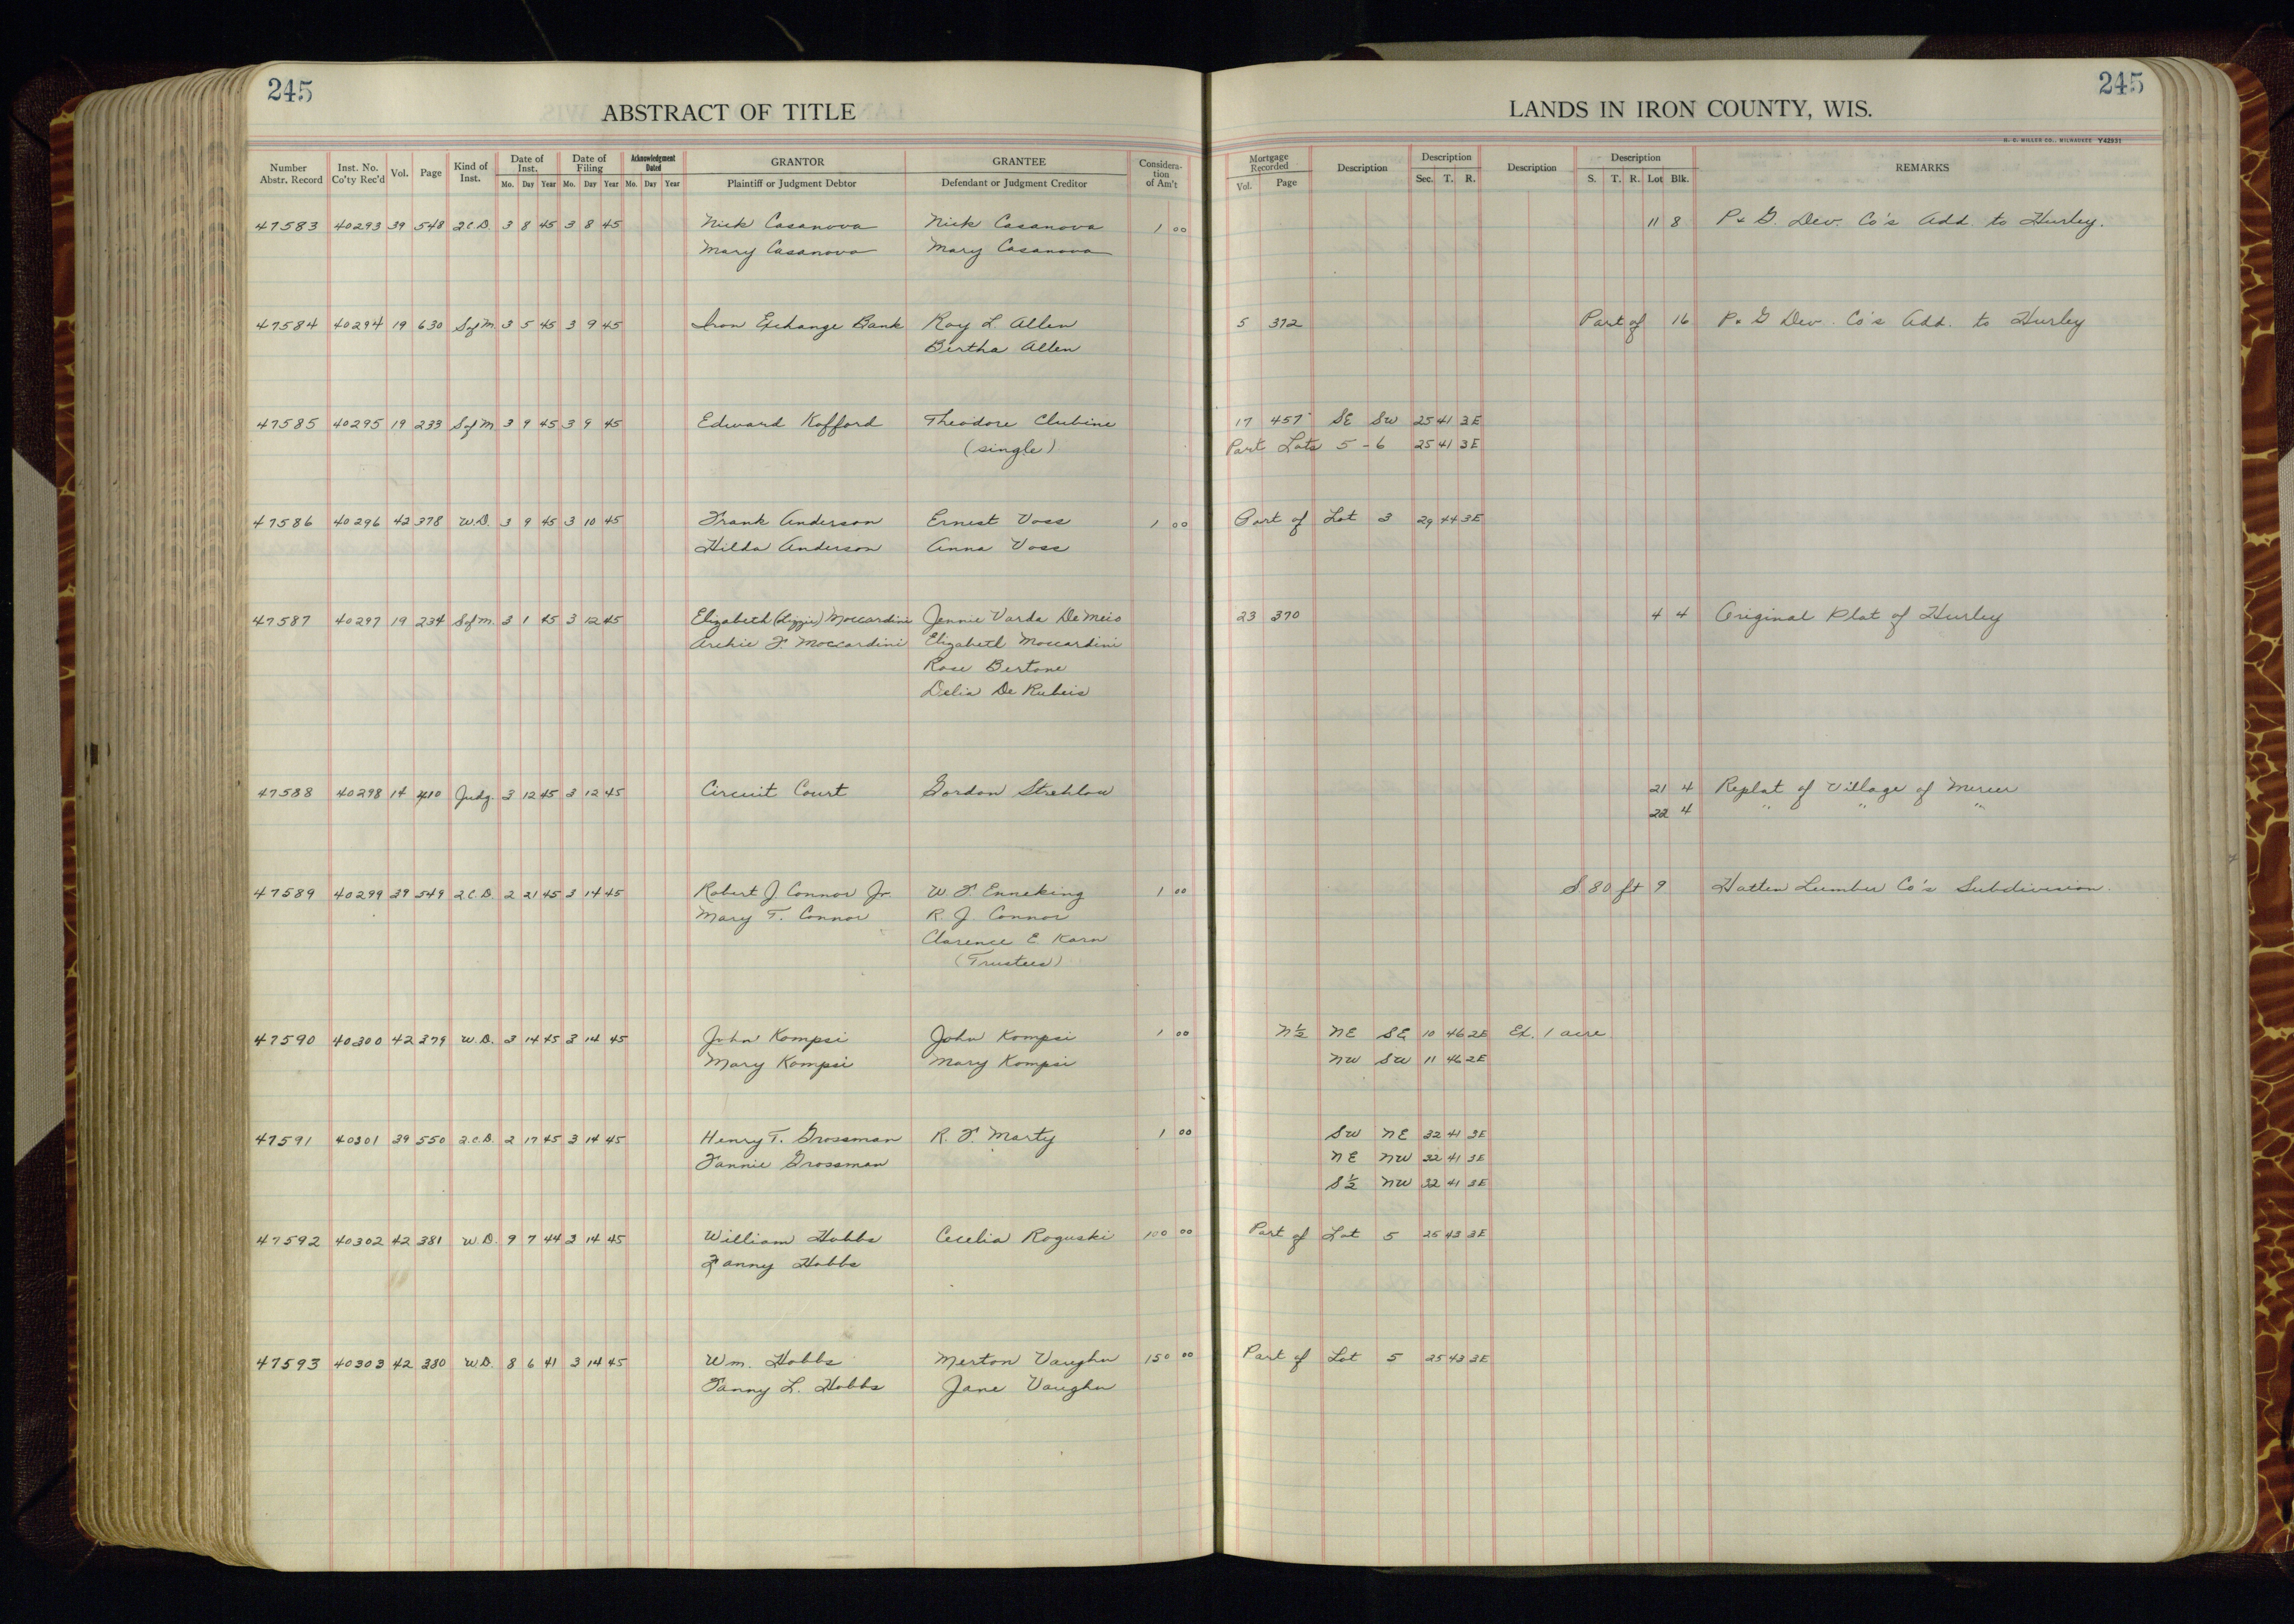 245
ABSTRACT OF TITLE
LANDS IN IRON COUNTY, WIS.
245
H. C. MILLER CO., MILWAUKEE Y42931
Number Abstr. Record | Inst. No. Co'ty Rec'd | Vol. | Page | Kind of Inst. | Date of Inst. Mo. Day Year | Date of Filing Mo. Day Year | Acknowledgment Dated Mo. Day Year | GRANTOR Plaintiff or Judgment Debtor | GRANTEE Defendant or Judgment Creditor | Consideration of Am't | Mortgage Recorded Vol. Page | Description | Description Sec. T. R. | Description | Description S. T. R. Lot Blk. | REMARKS
47583 40293 39 548 2 C.D. 3 8 45 3 8 45 Nick Casanova Nick Casanova 1 00 11 8 P & G. Dev. Co's Add. to Hurley.
Mary Casanova Mary Casanova
47584 40294 19 630 S of M. 3 5 45 3 9 45 Iron Exchange Bank Roy L Allen 5 372 Part of 16 P & G Dev. Co's Add. to Hurley
Bertha Allen
47585 40295 19 233 S of M 3 9 45 3 9 45 Edward Kofford Theodore Clubine 17 457 SE SW 25 41 3E
(single) Part Lots 5-6 25 41 3E
47586 40296 42 378 W.D. 3 9 45 3 10 45 Frank Anderson Ernest Voss 1 00 Part of Lot 3 29 44 3E
Hilda Anderson Anna Voss
47587 40297 19 234 S of M. 3 1 45 3 12 45 Elizabeth (Lizzie) Moccardini Jennie Varda De Meio 23 370 4 4 Original Plat of Hurley
Archie F. Moccardini Elizabeth Moccardini
Rose Bertone
Delia De Rubeis
47588 40298 14 410 Judg. 3 12 45 3 12 45 Circuit Court Gordon Strehlow 21 4 Replat of Village of Mercer
22 4 " " "
47589 40299 39 549 2 C.D. 2 21 45 3 14 45 Robert J Connor Jr. W. F. Enneking 1 00 S 80 ft 9 Hatten Lumber Co's Subdivision.
Mary T. Connor R. J. Connor
Clarence E Karn
(Trustees)
47590 40300 42 379 W.D. 3 14 45 3 14 45 John Kompsi John Kompsi 1 00 N½ NE SE 10 46 2E Ex. 1 acre
Mary Kompsi Mary Kompsi NW SW 11 46 2E
47591 40301 39 550 2.C.D. 2 17 45 3 14 45 Henry T. Grossman R. F. Marty 1 00 SW NE 32 41 3E
Fannie Grossman NE NW 32 41 3E
S½ NW 32 41 3E
47592 40302 42 381 W.D. 9 7 44 3 14 45 William Hobbs Cecelia Roguski 100 00 Part of Lot 5 25 43 3E
Fanny Hobbs
47593 40303 42 380 W.D. 8 6 41 3 14 45 Wm. Hobbs Merton Vaughn 150 00 Part of Lot 5 25 43 3E
Fanny L. Hobbs Jane Vaughn